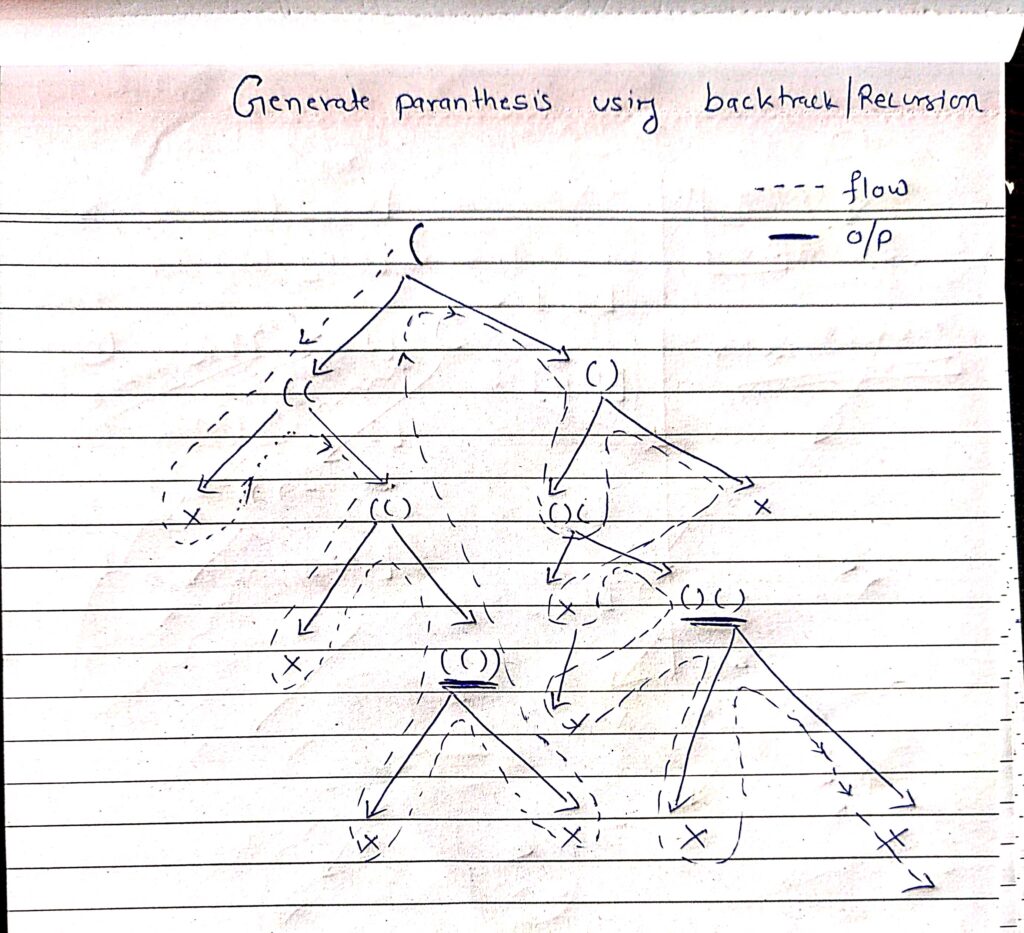 Generate paranthesis using backtrack/Recursion
---- flow
— o/p
(
((
()
x
(()
()(
x
x
x
()()
(())
x
x
x
x
x